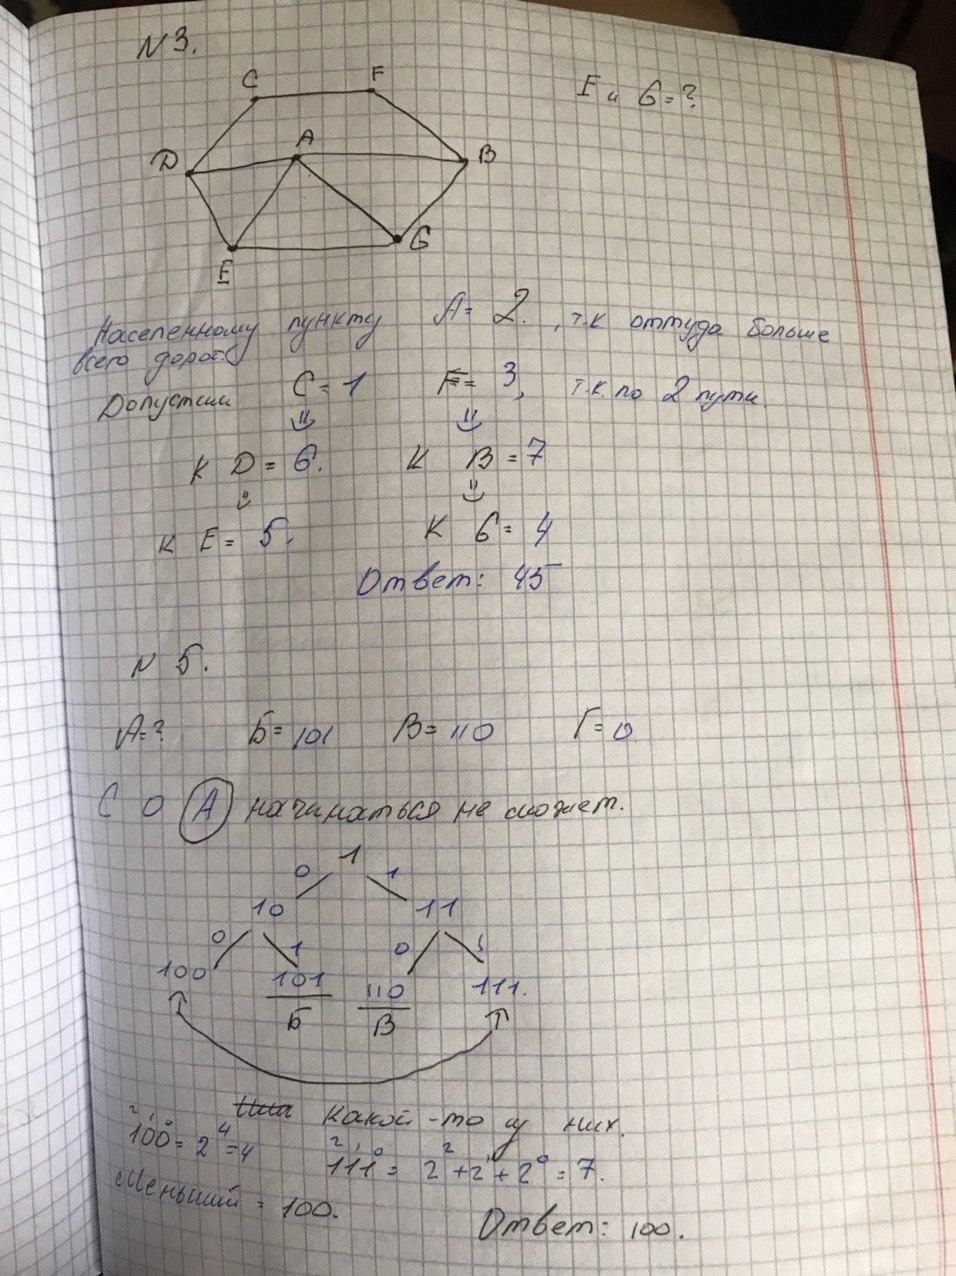 N 3.
C F
E и G = ?
A
D B
G
E
Населенному пункту A = 2., т.к оттуда больше
всего дорог.
Допустим C = 1 F = 3, т.к. по 2 пути.
К D = 6. К B = 7
К E = 5. К G = 4
Ответ: 45
N 5.
А=? Б=101 В=110 Г=0.
С 0 А начинаться не сможет.
1
0 1
10 11
0 1 0 1
100 101 110 111.
Б В
какой-то из них.
2 1 0
100 = 2⁴ = 4
2 1 0
111 = 2² + 2¹ + 2⁰ = 7.
Меньший = 100.
Ответ: 100.